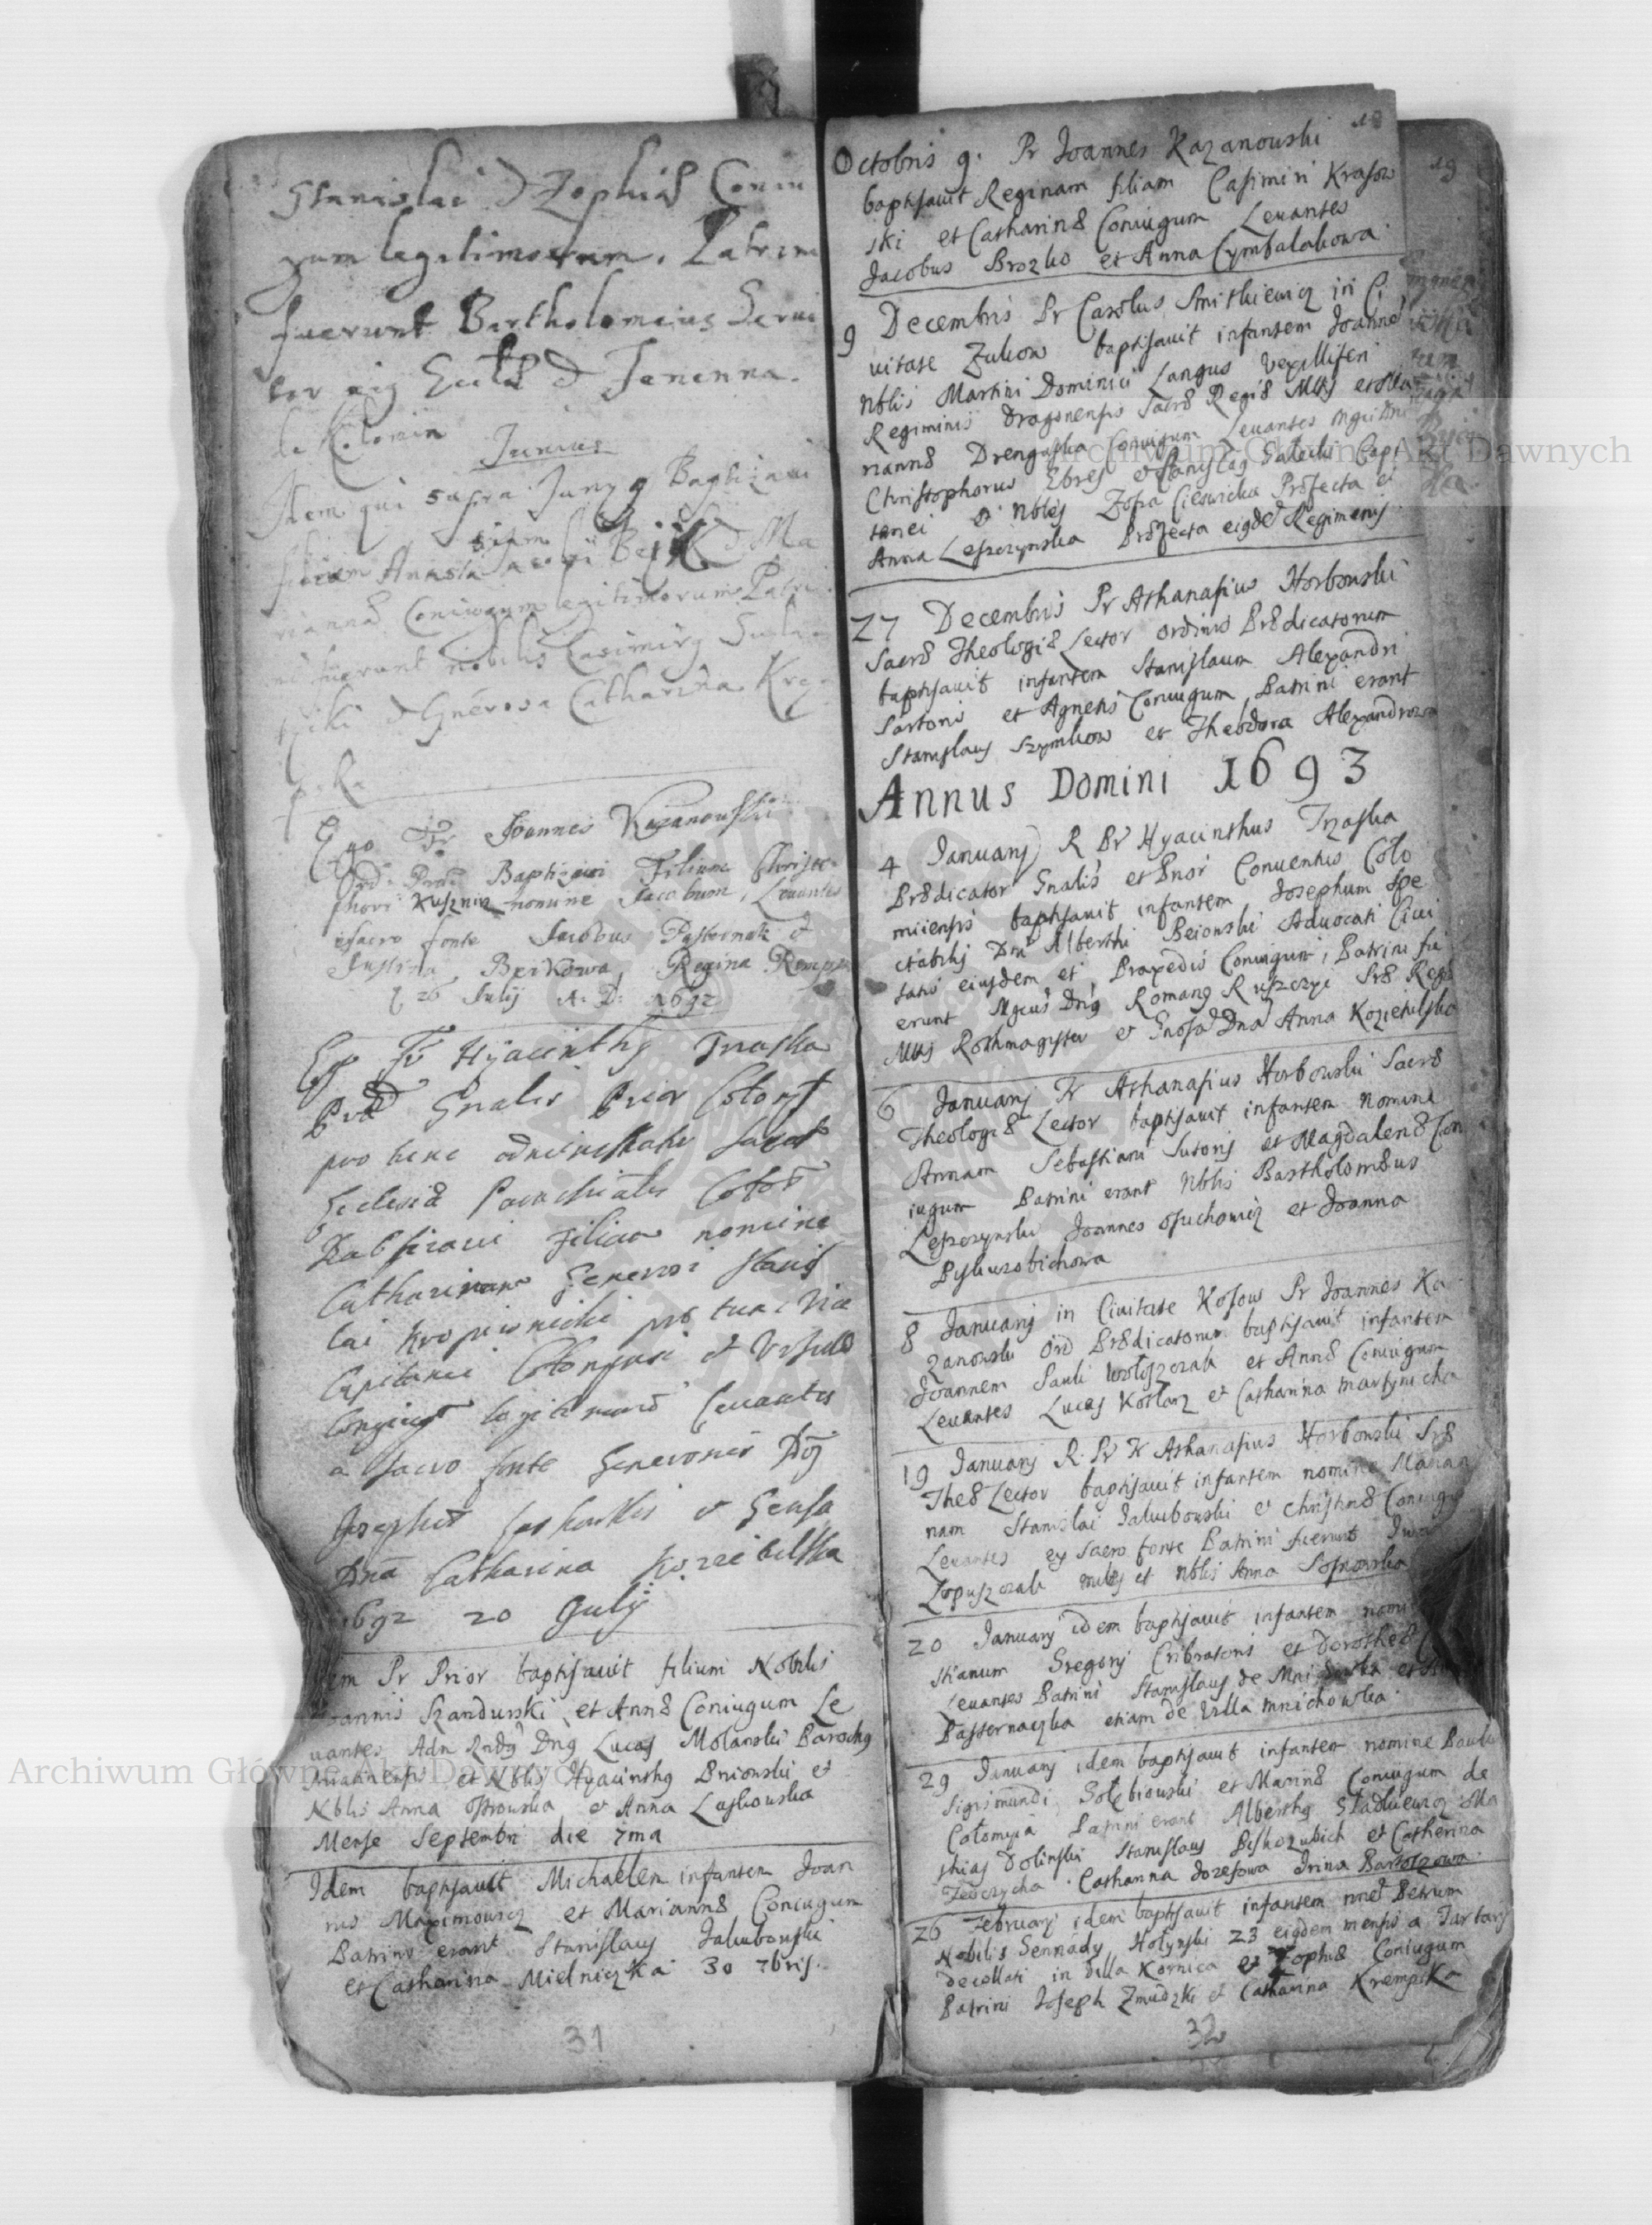 Stanislai & Zophiæ Coniu
gum legitimorum. Patrini
fuerunt Bartholomeius Serui
tor eiq Eccla &
de Kolomia
Junius
Idem qui supra Juny 9 Baptizaui
filiam Anasta siam Jacobi & Ma
riannæ Coniugum legitimorum Patri
ni fuerunt nobilis Casimirq
& Generosa Catharina
Ego Fr Joannes Kazanouski
Ord: Præd: Baptizaui Filium Christo
phori Kusznir nomine Jacobum, Leuantes
e sacro fonte Jacobus Pasternak &
Justina Regina
26 July A: D: 1692
Ego Fr Hyacinthq Trzaska
Præd Gnalis Prior Colonis
pro tunc
Ecclesiæ Parochialis
Babtizaui Filiam nomine
Catharinam Generosi Stanis
lai Kropiwnicki pro tunc Vice
Capitanei et Vrsulæ
Coniugu legitimoru Leuantes
a sacro fonte Generosus Dnq
Josephus & Gensa
Dna Catharina
1692 20 July
Idem Pr Prior baptisauit filium Nobilis
Joannis Szandurski et Annæ Coniugum Le
uantes Adn Rndq Dnq Lucas Molanski Parochq
et Nblis Hyacinthq Pnionski et
Nblis Anna Ostrouska et Anna Laskouska
Mense Septembri die 7ma
Idem baptisauit Michaelem infantem Joan
nis Maximowicz et Mariannæ Coniugum
Patrini erant Stanislaus Jakubouski
et Catharina Mielniczka 30 7bris.
31
18
Octobris 9. Pr Joannes Kazanouski
baptisauit Reginam filiam Casimiri Krasow
ski et Catharinæ Coniugum Leuantes
Jacobus Brozko et Anna Cymbalakowa
9 Decembris Pr Carolus Smitkiewicz in Ci
uitate Zukow baptisauit infantem Joanne
Nblis Martini Dominici Langus Vexilliferi
Regiminis Dragonensis Sacræ Regiæ Mttis et Ma
riannæ Drengaska Coniugum Leuantes
Christophorus Ebres et Stanislaq Galecki Capi
tanei & Nbles Zofia Ciesvicka Præfecta et
Anna Leszczynska Præfecta eiqde Regiminis
27 Decembris Pr Athanasius Horbouski
Sacræ Theologiæ Lector Ordinis Prædicatorum
baptisauit infantem Stanislaum Alexandri
Sartoris et Agnetis Coniugum Patrini erant
Stanislaus Szymkow et Theodora Alexandrowa
Annus Domini 1693
4 January R Pr Hyacinthus Trzaska
Prædicator Gnalis et Prior Conuentus Colo
miiensis baptisauit infantem Josephum Spe
ctabilis Dni Alberthi Beionski Aduocati Ciui
tatis eiusdem et Praxedis Coniugum; Patrini fu
erunt Mgcus Dnq Romanq Ruszczyc Sræ Regiæ
Mttis Rothmagister et Gnosa Dna Anna Koziehilska
6 January Fr Athanasius Horbouski Sacræ
Theologiæ Lector baptisauit infantem nomine
Annam Sebastiani Sutoris et Magdalenæ Con
iugum Patrini erant Nblis Bartholomæus
Leszczynski Joannes Osuchowicz et Joanna
Pyskurobichowa
8 January in Ciuitate Kosow Pr Joannes Ka
zanouski Ord Prædicatorum baptisauit infantem
Joannem Pauli Woloszczak et Annæ Coniugum
Leuantes Lucas Kotlarz et Catharina Martynicha
19 January R. Pr Fr Athanasius Horbouski Sræ
Theæ Lector baptisauit infantem nomine Marian
nam Stanislai Jakubouski et Christinæ Coniugu
Leuantes ex Sacro fonte Patrini fuerunt Iwan
Lopuszczak miles et Nblis Anna Sosnowska
20 January idem baptisauit infantem nomi
stianum Gregory Cribratoris et Dorotheæ
Leuantes Patrini Stanislaus de et
Pasternaczka etiam de Villa Mnichowka
29 January idem baptisauit infantem nomine Paulu
Sigismundi Golębiouski et Marinæ Coniugum de
Cołomyia Patrini erant Alberthq Gladkiewicz Ma
thias Dolinski Stanislaus Piskozubich et Catherina
Catharina Jozefowa Irina Bartoszowa
26 February idem baptisauit infantem nne Petrum
Nobilis Gennady Hołynski 23 eiqdem mensis a Tartaris
decollati in Villa Kornica et Zophiæ Coniugum
Patrini Joseph Zmudzki et Catharina KrempsKa
32
19
Archiwum Główne Akt Dawnych
Archiwum Główne Akt Dawnych